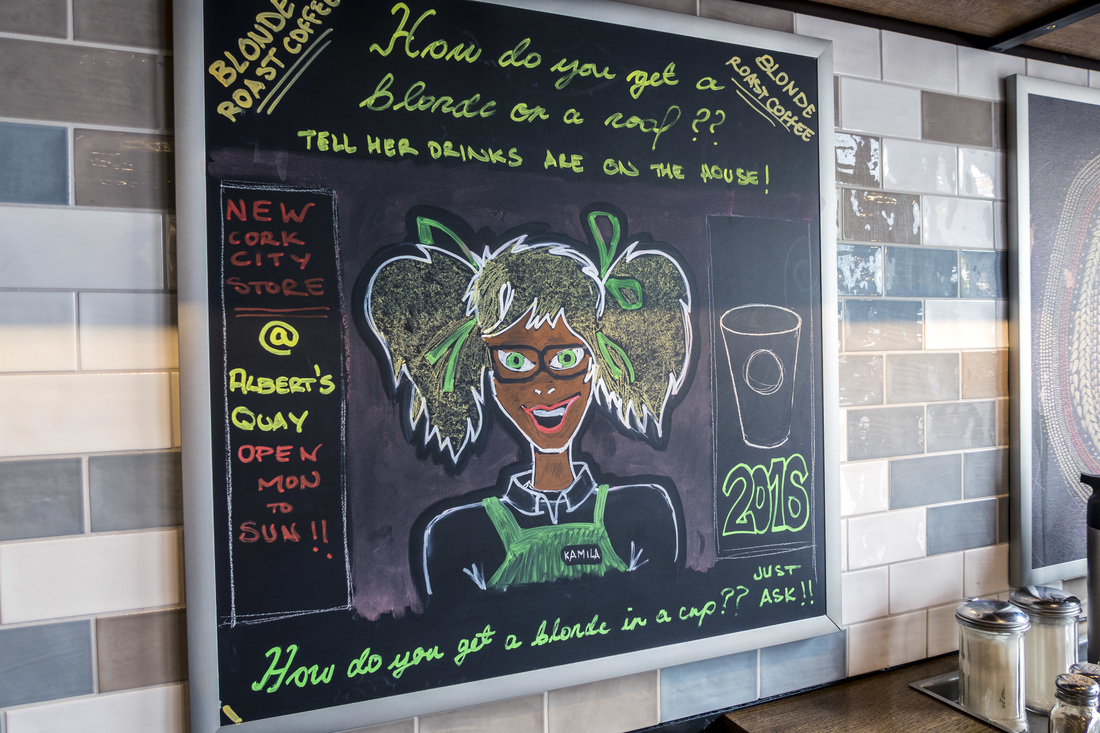 BLONDE
ROAST COFFEE
How do you get a
blonde on a roof??
BLONDE
ROAST COFFEE
TELL HER DRINKS ARE ON THE HOUSE!
NEW
CORK
CITY
STORE
@
ALBERT'S
QUAY
OPEN
MON
TO
SUN!!
KAMILA
2016
How do you get a blonde in a cup??
JUST
ASK!!